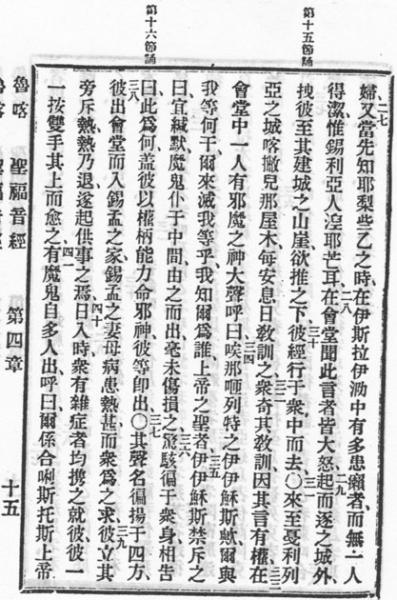 第十五節誦
第十六節誦
婦又當先知耶梨些乙之時在伊斯拉伊泐中有多患癩者而無一人
二七
得潔惟錫利亞人湼耶芒耳在會堂聞此言者皆大怒起而逐之城外
二八 二九
拽彼至其建城之山崖欲推之下彼經行于衆中而去〇來至戞利列
三十 三一
亞之城喀撇兒那屋木每安息日敎訓之衆奇其敎訓因其言有權在
三二 三三
會堂中一人有邪魔之神大聲呼曰唉那咂列特之伊伊穌斯歟爾與
三四
我等何干爾來滅我等乎我知爾爲誰上帝之聖者伊伊穌斯禁斥之
三五
曰宜緘默魔鬼仆于中間由之而出毫未傷損之驚駭徧于衆身相告
三六
曰此爲何盖彼以權柄能力命邪神彼等卽出〇其聲名徧揚于四方
三七
彼出會堂而入錫孟之家錫孟之妻母病患熱甚而衆爲之求彼立其
三八
旁斥熱熱乃退遂起供事之焉日入時衆有雜症者均携之就彼彼一
三九 四十
一按雙手其上而愈之有魔鬼自多人出呼曰爾係合唎斯托斯上帝
四一
魯喀 聖福音經 第四章 十五